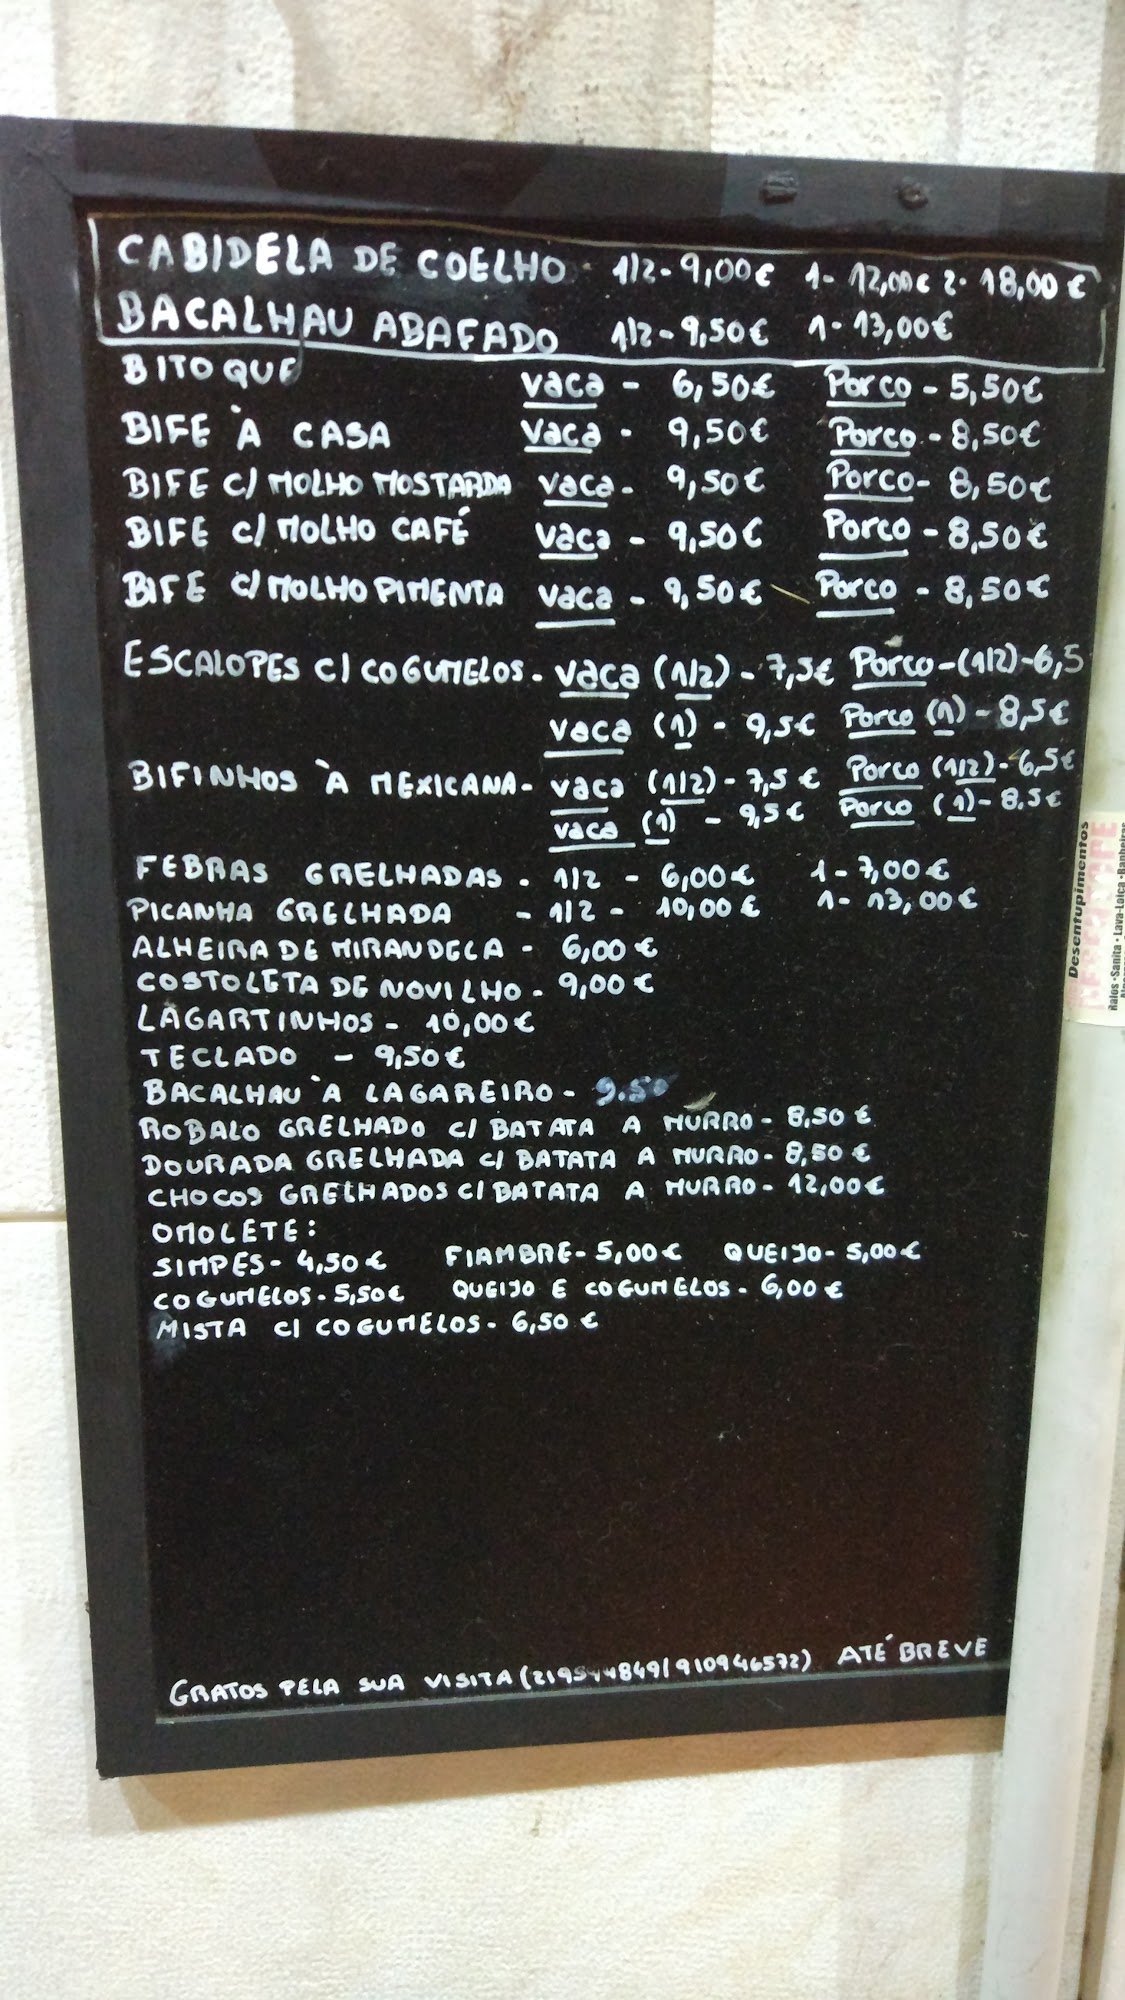 CABIDELA DE COELHO - 1/2 - 9,00€ 1 - 12,00€ 2 - 18,00€
BACALHAU ABAFADO 1/2 - 9,50€ 1 - 13,00€
BITOQUE vaca - 6,50€ Porco - 5,50€
BIFE À CASA vaca - 9,50€ Porco - 8,50€
BIFE C/ MOLHO MOSTARDA vaca - 9,50€ Porco - 8,50€
BIFE C/ MOLHO CAFÉ vaca - 9,50€ Porco - 8,50€
BIFE C/ MOLHO PIMENTA vaca - 9,50€ Porco - 8,50€
ESCALOPES C/ COGUMELOS - vaca (1/2) - 7,5€ Porco - (1/2) - 6,5
vaca (1) - 9,5€ Porco (1) - 8,5€
BIFINHOS À MEXICANA - vaca (1/2) - 7,5€ Porco (1/2) - 6,5€
vaca (1) - 9,5€ Porco (1) - 8.5€
FEBRAS GRELHADAS - 1/2 - 6,00€ 1 - 7,00€
PICANHA GRELHADA - 1/2 - 10,00€ 1 - 13,00€
ALHEIRA DE MIRANDELA - 6,00€
COSTOLETA DE NOVILHO - 9,00€
LAGARTINHOS - 10,00€
TECLADO - 9,50€
BACALHAU À LAGAREIRO - 9.50
ROBALO GRELHADO C/ BATATA A MURRO - 8,50€
DOURADA GRELHADA C/ BATATA A MURRO - 8,50€
CHOCOS GRELHADOS C/ BATATA A MURRO - 12,00€
OMOLETE:
SIMPES - 4,50€ FIAMBRE - 5,00€ QUEIJO - 5,00€
COGUMELOS - 5,50€ QUEIJO E COGUMELOS - 6,00€
MISTA C/ COGUMELOS - 6,50€
GRATOS PELA SUA VISITA (/910946572) ATÉ BREVE
Desentupimentos
Ralos • Sanita • Lava-Loiça •